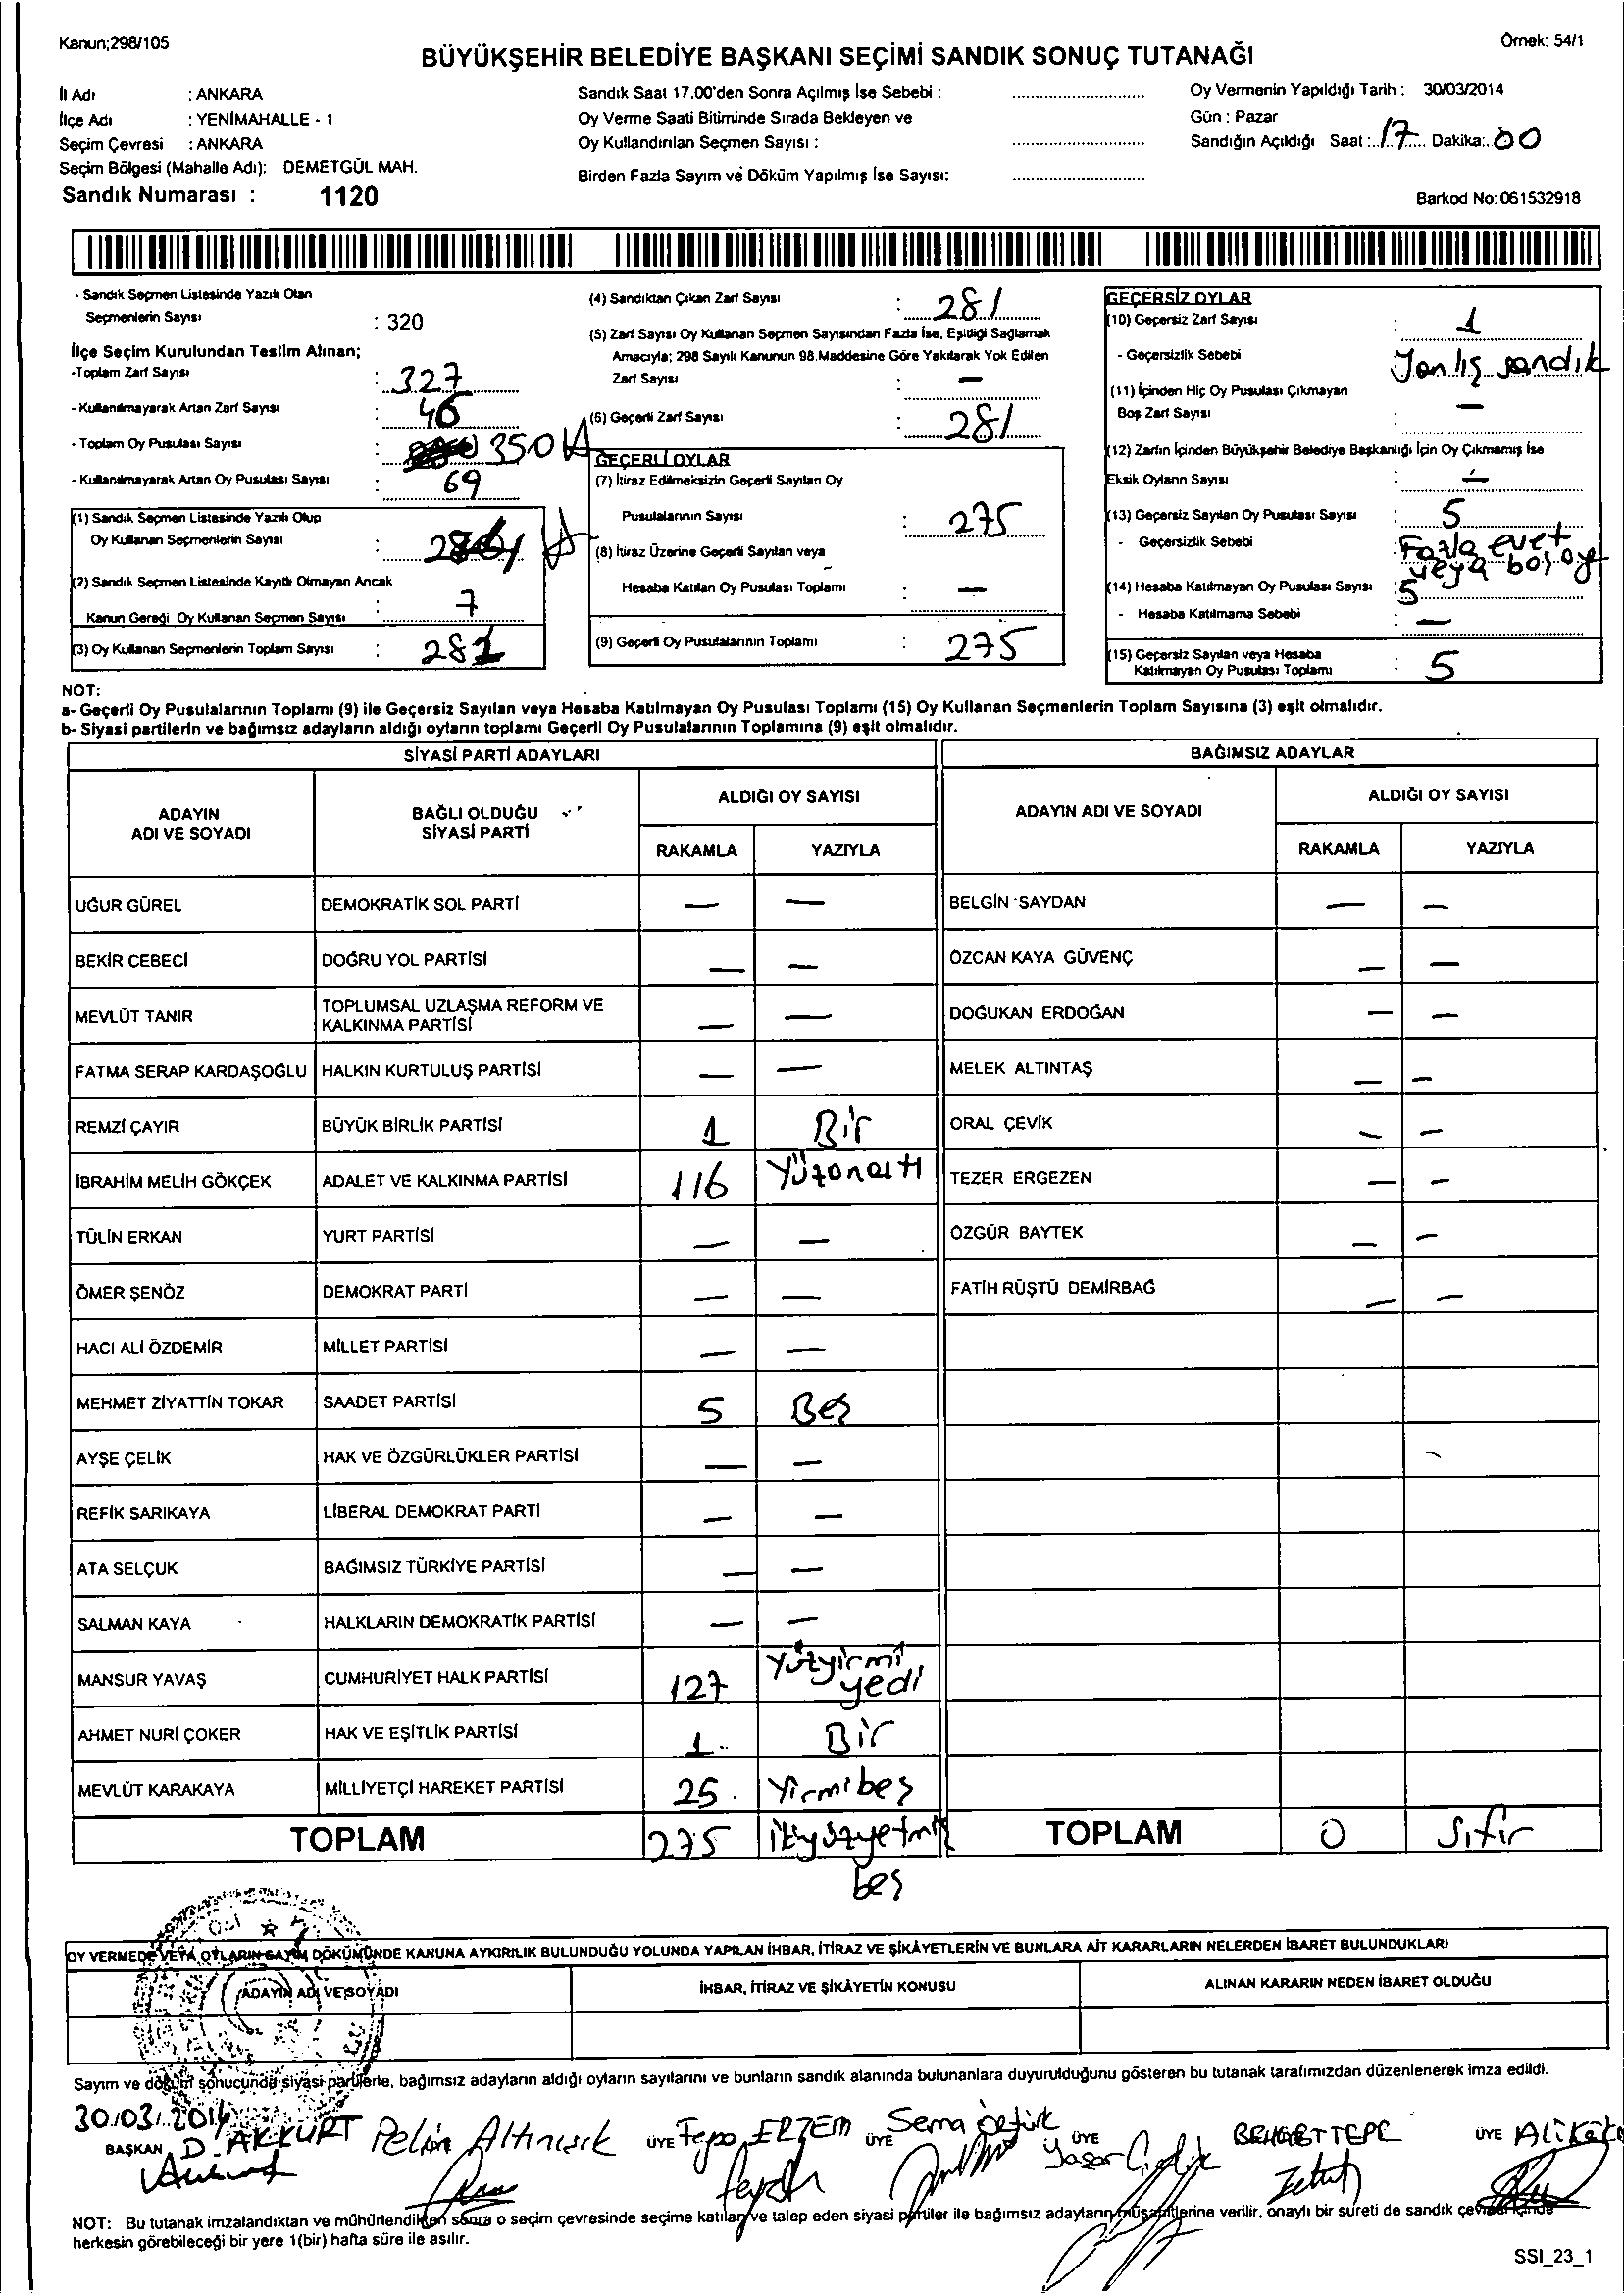 Kanun;298/105
Örnek: 54/1
BÜYÜKŞEHİR BELEDİYE BAŞKANI SEÇİMİ SANDIK SONUÇ TUTANAĞI
İl Adı : ANKARA
İlçe Adı : YENİMAHALLE - 1
Seçim Çevresi : ANKARA
Seçim Bölgesi (Mahalle Adı): DEMETGÜL MAH.
Sandık Numarası : 1120
Sandık Saat 17.00'den Sonra Açılmış İse Sebebi :
Oy Verme Saati Bitiminde Sırada Bekleyen ve
Oy Kullandırılan Seçmen Sayısı :
Birden Fazla Sayım ve Döküm Yapılmış İse Sayısı:
Oy Vermenin Yapıldığı Tarih : 30/03/2014
Gün : Pazar
Sandığın Açıldığı Saat : 17 Dakika: 00
Barkod No: 061532918
- Sandık Seçmen Listesinde Yazılı Olan
Seçmenlerin Sayısı : 320
İlçe Seçim Kurulundan Teslim Alınan;
-Toplam Zarf Sayısı : 327
- Kullanılmayarak Artan Zarf Sayısı : 46
- Toplam Oy Pusulası Sayısı : 350
- Kullanılmayarak Artan Oy Pusulası Sayısı : 69
(1) Sandık Seçmen Listesinde Yazılı Olup
Oy Kullanan Seçmenlerin Sayısı :
(2) Sandık Seçmen Listesinde Kayıtlı Olmayan Ancak
Kanun Gereği Oy Kullanan Seçmen Sayısı : 7
(3) Oy Kullanan Seçmenlerin Toplam Sayısı : 281
(4) Sandıktan Çıkan Zarf Sayısı : 281
(5) Zarf Sayısı Oy Kullanan Seçmen Sayısından Fazla İse, Eşitliği Sağlamak
Amacıyla; 298 Sayılı Kanunun 98.Maddesine Göre Yakılarak Yok Edilen
Zarf Sayısı : —
(6) Geçerli Zarf Sayısı : 281
GEÇERLİ OYLAR
(7) İtiraz Edilmeksizin Geçerli Sayılan Oy
Pusulalarının Sayısı : 275
(8) İtiraz Üzerine Geçerli Sayılan veya
Hesaba Katılan Oy Pusulası Toplamı : —
(9) Geçerli Oy Pusulalarının Toplamı : 275
GEÇERSİZ OYLAR
(10) Geçersiz Zarf Sayısı : 1
- Geçersizlik Sebebi Yanlış sandık
(11) İçinden Hiç Oy Pusulası Çıkmayan
Boş Zarf Sayısı : —
(12) Zarfın İçinden Büyükşehir Belediye Başkanlığı İçin Oy Çıkmamış İse
Eksik Oyların Sayısı : —
(13) Geçersiz Sayılan Oy Pusulası Sayısı : 5
- Geçersizlik Sebebi : Fazla evet
veya boş oy
(14) Hesaba Katılmayan Oy Pusulası Sayısı : 5
- Hesaba Katılmama Sebebi : —
(15) Geçersiz Sayılan veya Hesaba
Katılmayan Oy Pusulası Toplamı : 5
NOT:
a- Geçerli Oy Pusulalarının Toplamı (9) ile Geçersiz Sayılan veya Hesaba Katılmayan Oy Pusulası Toplamı (15) Oy Kullanan Seçmenlerin Toplam Sayısına (3) eşit olmalıdır.
b- Siyasi partilerin ve bağımsız adayların aldığı oyların toplamı Geçerli Oy Pusulalarının Toplamına (9) eşit olmalıdır.
SİYASİ PARTİ ADAYLARI
ADAYIN ADI VE SOYADI BAĞLI OLDUĞU SİYASİ PARTİ ALDIĞI OY SAYISI
RAKAMLA YAZIYLA
UĞUR GÜREL DEMOKRATİK SOL PARTİ — —
BEKİR CEBECİ DOĞRU YOL PARTİSİ — —
MEVLÜT TANIR TOPLUMSAL UZLAŞMA REFORM VE KALKINMA PARTİSİ — —
FATMA SERAP KARDAŞOĞLU HALKIN KURTULUŞ PARTİSİ — —
REMZİ ÇAYIR BÜYÜK BİRLİK PARTİSİ 1 Bir
İBRAHİM MELİH GÖKÇEK ADALET VE KALKINMA PARTİSİ 116 Yüzonaltı
TÜLİN ERKAN YURT PARTİSİ — —
ÖMER ŞENÖZ DEMOKRAT PARTİ — —
HACI ALİ ÖZDEMİR MİLLET PARTİSİ — —
MEHMET ZİYATTİN TOKAR SAADET PARTİSİ 5 Beş
AYŞE ÇELİK HAK VE ÖZGÜRLÜKLER PARTİSİ — —
REFİK SARIKAYA LİBERAL DEMOKRAT PARTİ — —
ATA SELÇUK BAĞIMSIZ TÜRKİYE PARTİSİ — —
SALMAN KAYA HALKLARIN DEMOKRATİK PARTİSİ — —
MANSUR YAVAŞ CUMHURİYET HALK PARTİSİ 127 Yüzyirmi yedi
AHMET NURİ ÇOKER HAK VE EŞİTLİK PARTİSİ 1 Bir
MEVLÜT KARAKAYA MİLLİYETÇİ HAREKET PARTİSİ 25 Yirmibeş
TOPLAM 275 ikiyüzyetmiş beş
BAĞIMSIZ ADAYLAR
ADAYIN ADI VE SOYADI ALDIĞI OY SAYISI
RAKAMLA YAZIYLA
BELGİN SAYDAN — —
ÖZCAN KAYA GÜVENÇ — —
DOĞUKAN ERDOĞAN — —
MELEK ALTINTAŞ — —
ORAL ÇEVİK — —
TEZER ERGEZEN — —
ÖZGÜR BAYTEK — —
FATİH RÜŞTÜ DEMİRBAĞ — —
TOPLAM 0 Sıfır
OY VERMEDE VEYA OYLARIN SAYIM DÖKÜMÜNDE KANUNA AYKIRILIK BULUNDUĞU YOLUNDA YAPILAN İHBAR, İTİRAZ VE ŞİKÂYETLERİN VE BUNLARA AİT KARARLARIN NELERDEN İBARET BULUNDUKLARI
ADAYIN ADI VE SOYADI İHBAR, İTİRAZ VE ŞİKÂYETİN KONUSU ALINAN KARARIN NEDEN İBARET OLDUĞU
Sayım ve döküm sonucunda siyasi partilerle, bağımsız adayların aldığı oyların sayılarını ve bunların sandık alanında bulunanlara duyurulduğunu gösteren bu tutanak tarafımızdan düzenlenerek imza edildi.
30/03/2014
BAŞKAN D. AKKURT Pelin Altınışık ÜYE ERZEM ÜYE Sema Öztürk ÜYE Yaşar BEHÇET TEPE ÜYE Ali
NOT: Bu tutanak imzalandıktan ve mühürlendikten sonra o seçim çevresinde seçime katılan ve talep eden siyasi partiler ile bağımsız adayların müşahitlerine verilir, onaylı bir sureti de sandık çevresi içinde
herkesin görebileceği bir yere 1(bir) hafta süre ile asılır.
SSI_23_1